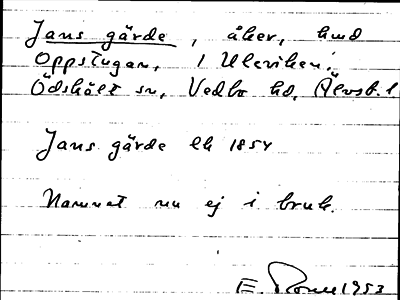 Jans gärde, åker, hmd
Oppstugan, 1 Uleviken.
Ödskölt sn, Vedbo hd, Älvsb. l
Jans gärde lh 1854
Namnet nu ej i bruk.
E. 1953